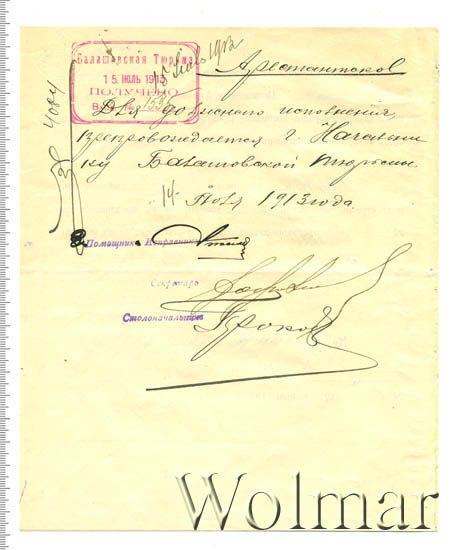 Балашовская Тюрьма
15 ІЮЛЬ 1913
ПОЛУЧЕНО
Арестантское
Для должного исполнения,
препровождается г. Начальни
ку Балашовской тюрьмы.
14 Іюля 1913 года.
Помощникъ Исправника
Секретарь
Столоначальникъ
Wolmar